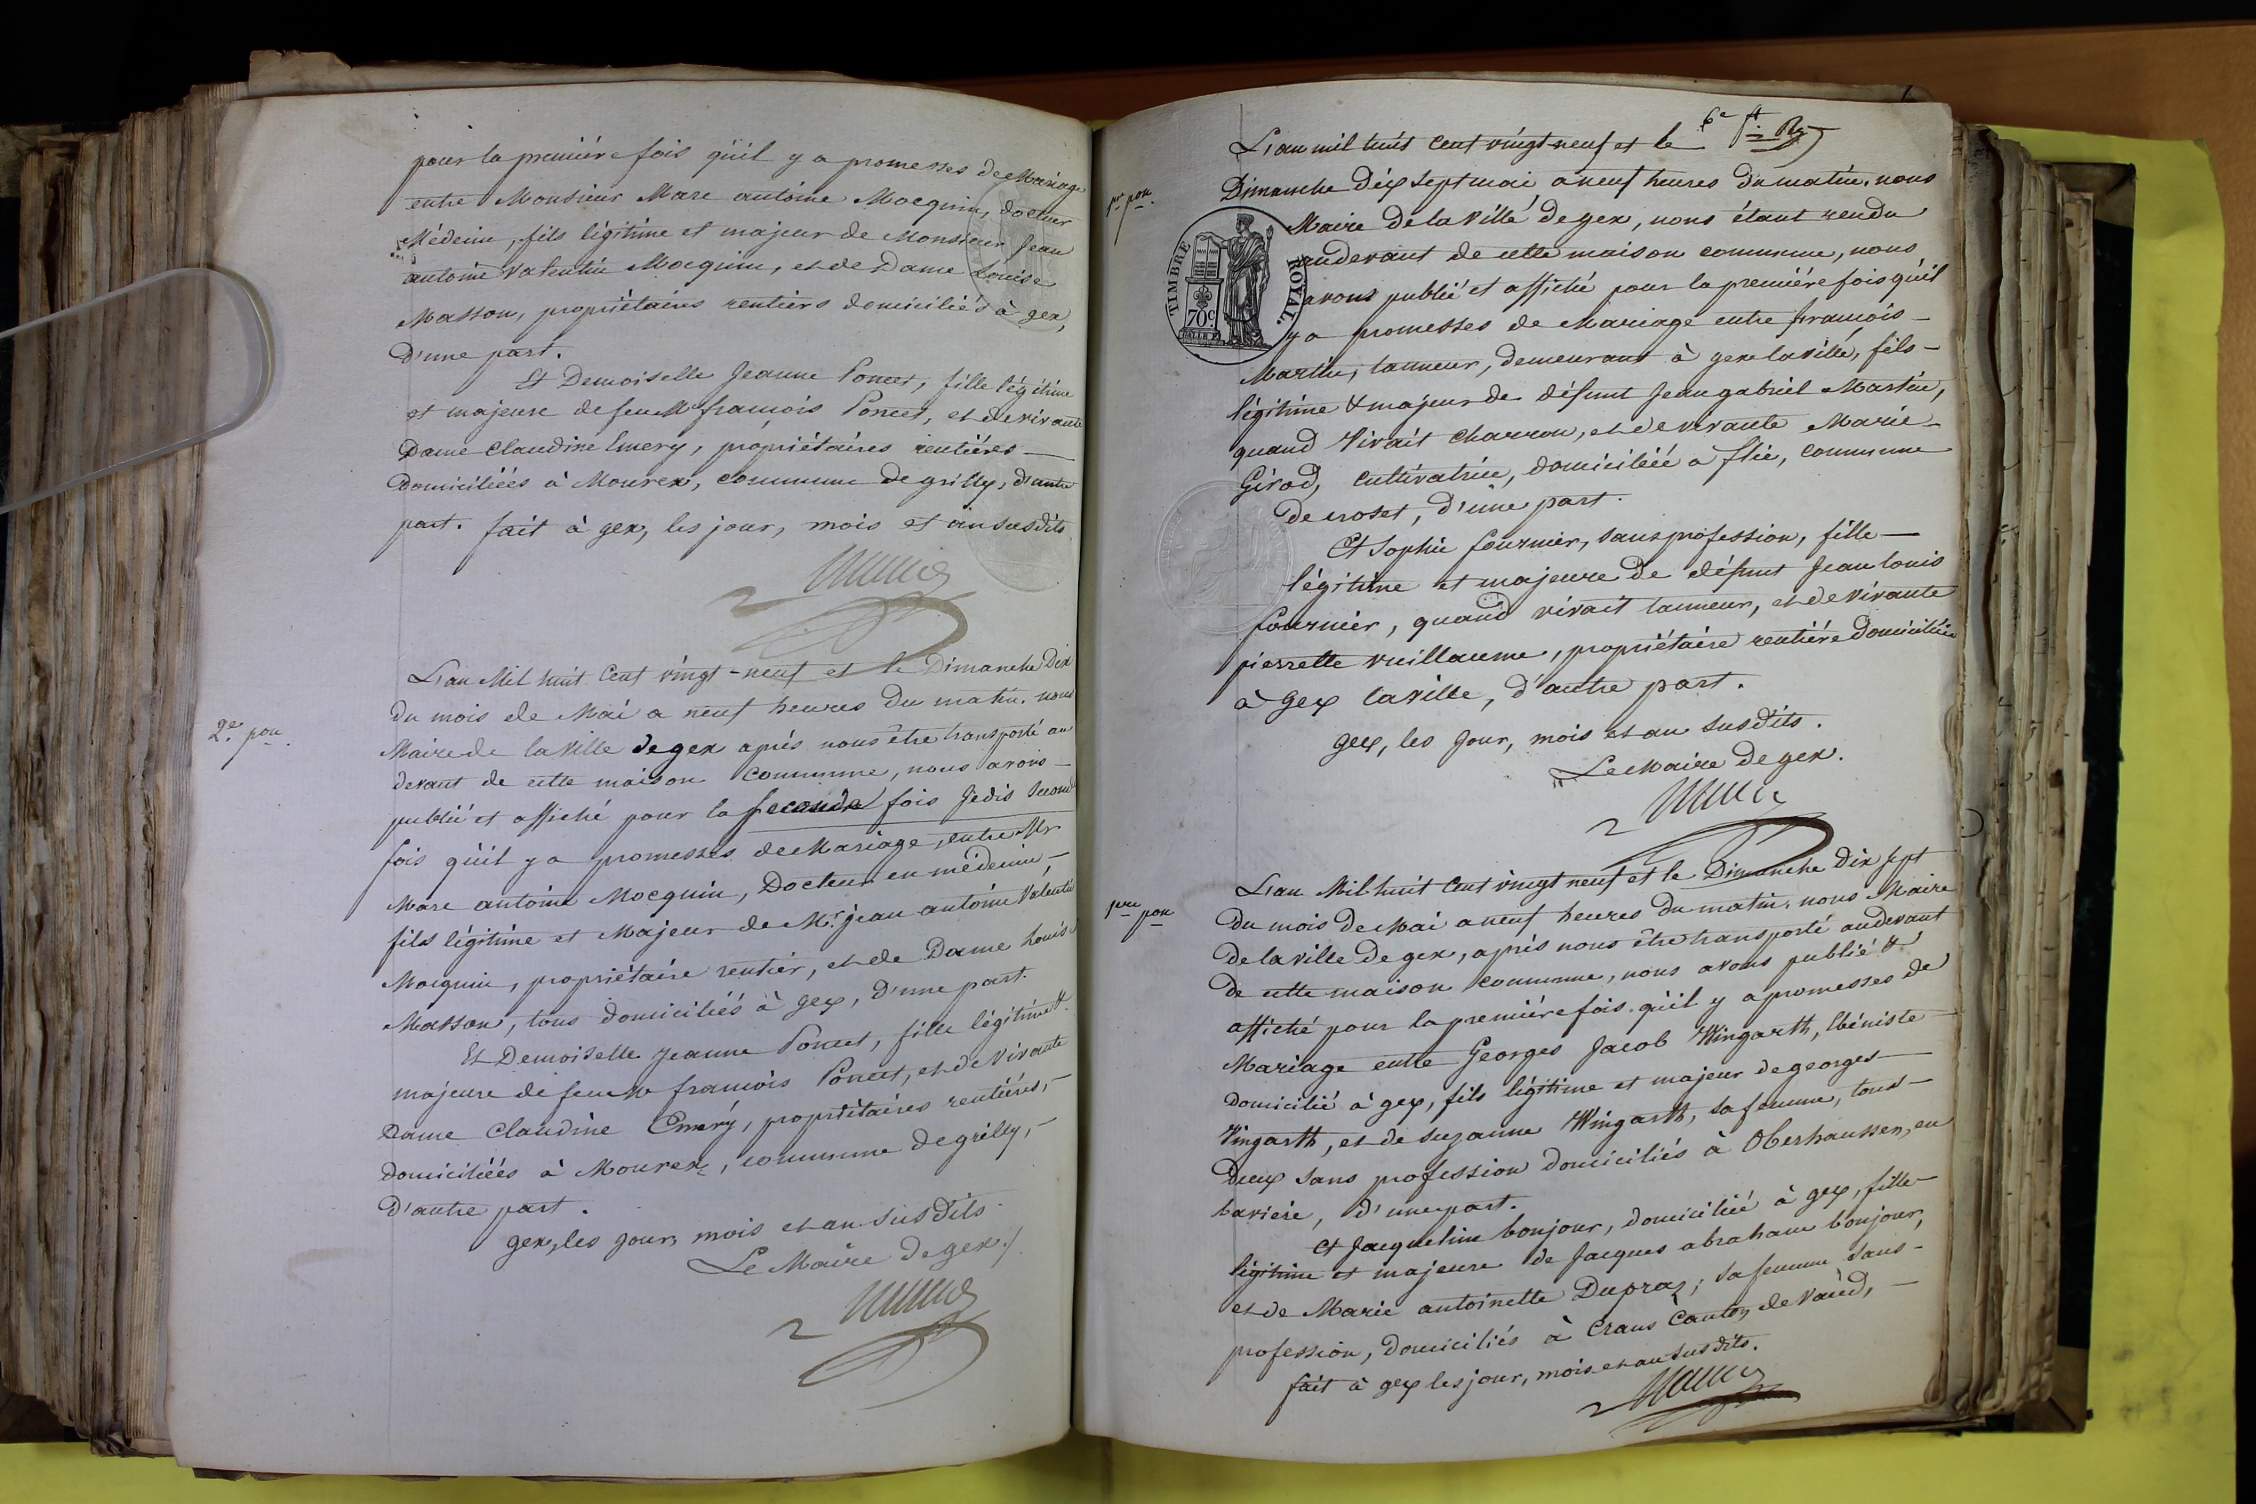 pour la première fois qu'il y a promesses de Mariage
entre Monsieur Marc antoine Mocquin, docteur
Médecin, fils légitime et majeur de Monsieur Jean
antoine Valentin Mocquin, et de Dame Louise
Masson, propriétaires rentiers domiciliés à gex,
d'une part.
Et Demoiselle Jeanne Poncet, fille légitime
et majeure de feu Mr françois Poncet, et de vivante
Dame Claudine Emery, propriétaires rentières
domiciliées à Mourex, commune de grilly, d'autre
part. fait à gex, les jour, mois et an susdits
2e. pon.
L'an Mil huit Cent vingt-neuf et le Dimanche Dix
du mois de Mai a neuf heures du matin, nous
Maire de la ville de gex après nous être transporté au
devant de cette maison Commune, nous avons
publié et affiché pour la seconde fois Je dis seconde
fois qu'il y a promesses de Mariage, entre Mr
Marc antoine Mocquin, Docteur en médecine,
fils légitime et Majeur de Mr. jean antoine Valentin
Mocquin, propriétaire rentier, et de Dame Louise
Masson, tous domiciliés à gex, d'une part.
Et Demoiselle Jeanne Poncet, fille légitime &
majeure de feu Mr françois Poncet, et de vivante
Dame Claudine Emery, propriétaires rentières,
domiciliées à Mourex, commune de grilly,
d'autre part.
gex, les jour, mois et an susdits.
Le Maire de gex.
6e ft
1re pon.
L'an mil huit Cent vingt neuf et le
Dimanche dix sept mai a neuf heures du matin, nous
Maire de la Ville de gex, nous étant rendu
audevant de cette maison commune, nous
avons publié et affiché pour la première fois qu'il
y a promesses de Mariage entre françois
Martin, tanneur, demeurant à gex la ville, fils
légitime & majeur de défunt Jean gabriel Martin,
quand vivait charron, et de vivante Marie
Girod, cultivatrice, domiciliée a flie, commune
de croset, d'une part.
Et Sophie fournier, sans profession, fille
légitime et majeure de défunt Jean louis
fournier, quand vivait tanneur, et de vivante
pierrette vuillaume, propriétaire rentière domiciliée
à gex la ville, d'autre part.
gex, les jour, mois et an susdits.
Le Maire de gex.
TIMBRE ROYAL.
70c
1re pon
L'an Mil huit Cent vingt neuf et le Dimanche Dix sept
du mois de Mai a neuf heures du matin, nous Maire
de la ville de gex, après nous être transporté audevant
de cette maison commune, nous avons publié &
affiché pour la première fois qu'il y a promesses de
Mariage entre Georges Jacob Wingarth, Ebéniste
domicilié à gex, fils légitime et majeur de georges
Wingarth, et de suzanne Wingarth, sa femme, tous
deux sans profession domiciliés à Oberhaussen, en
bavière, d'une part.
Et Jacqueline bonjour, domiciliée à gex, fille
légitime et majeure de Jacques abraham bonjour,
et de Marie antoinette Dupraz, sa femme sans
profession, domiciliés à Crans Canton de Vaud,
fait à gex les jour, mois et an susdits.